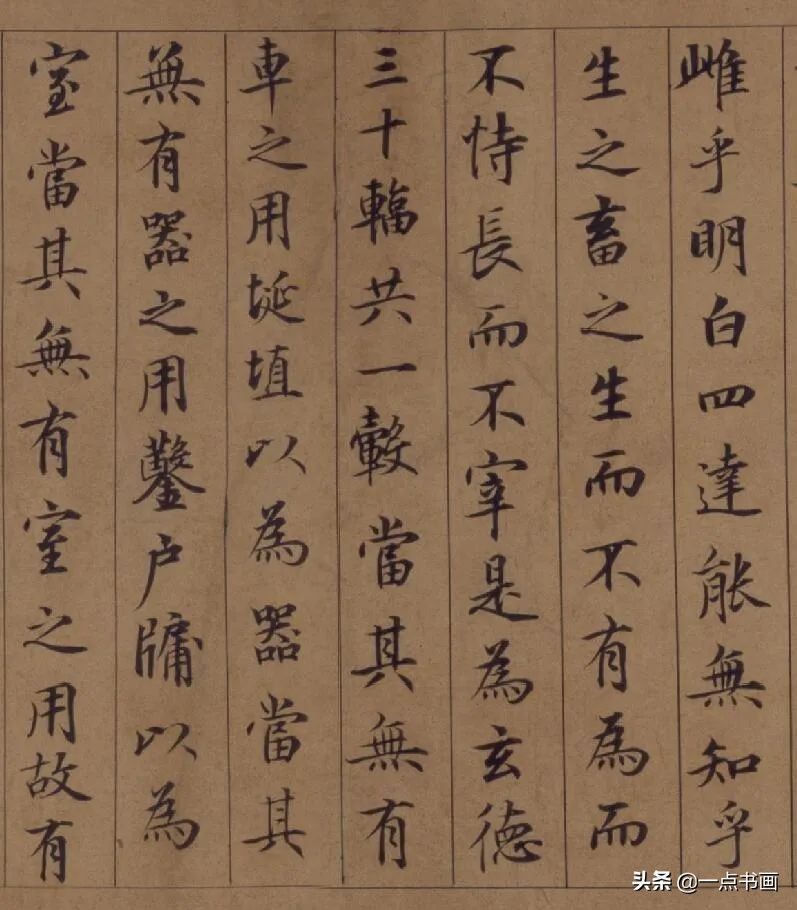 雌乎明白四達能無知乎
生之畜之生而不有為而
不恃長而不宰是為玄德
三十輻共一轂當其無有
車之用埏埴以為器當其
無有器之用鑿戶牖以為
室當其無有室之用故有
头条 @一点书画